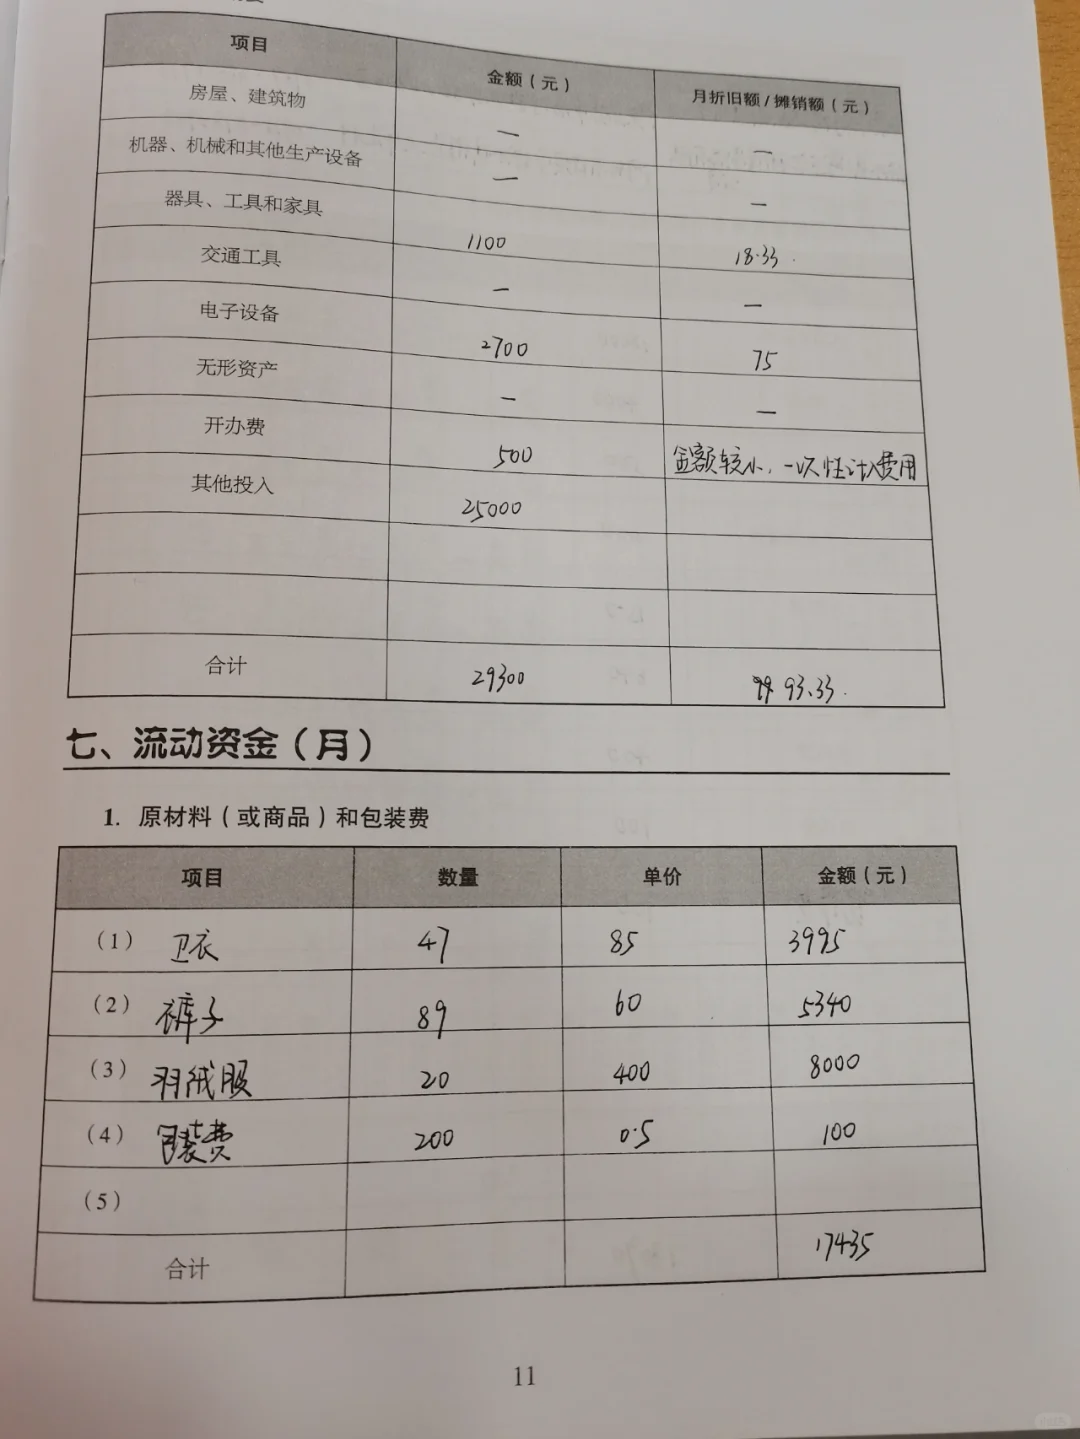 项目 金额（元） 月折旧额/摊销额（元）
房屋、建筑物 — —
机器、机械和其他生产设备 — —
器具、工具和家具 1100 18.33
交通工具 — —
电子设备 2700 75
无形资产 — —
开办费 500 金额较小，一次性计入费用
其他投入 25000
合计 29300 93.33
七、流动资金（月）
1. 原材料（或商品）和包装费
项目 数量 单价 金额（元）
（1） 卫衣 47 85 3995
（2） 裤子 89 60 5340
（3） 羽绒服 20 400 8000
（4） 包装费 200 0.5 100
（5）
合计 17435
11